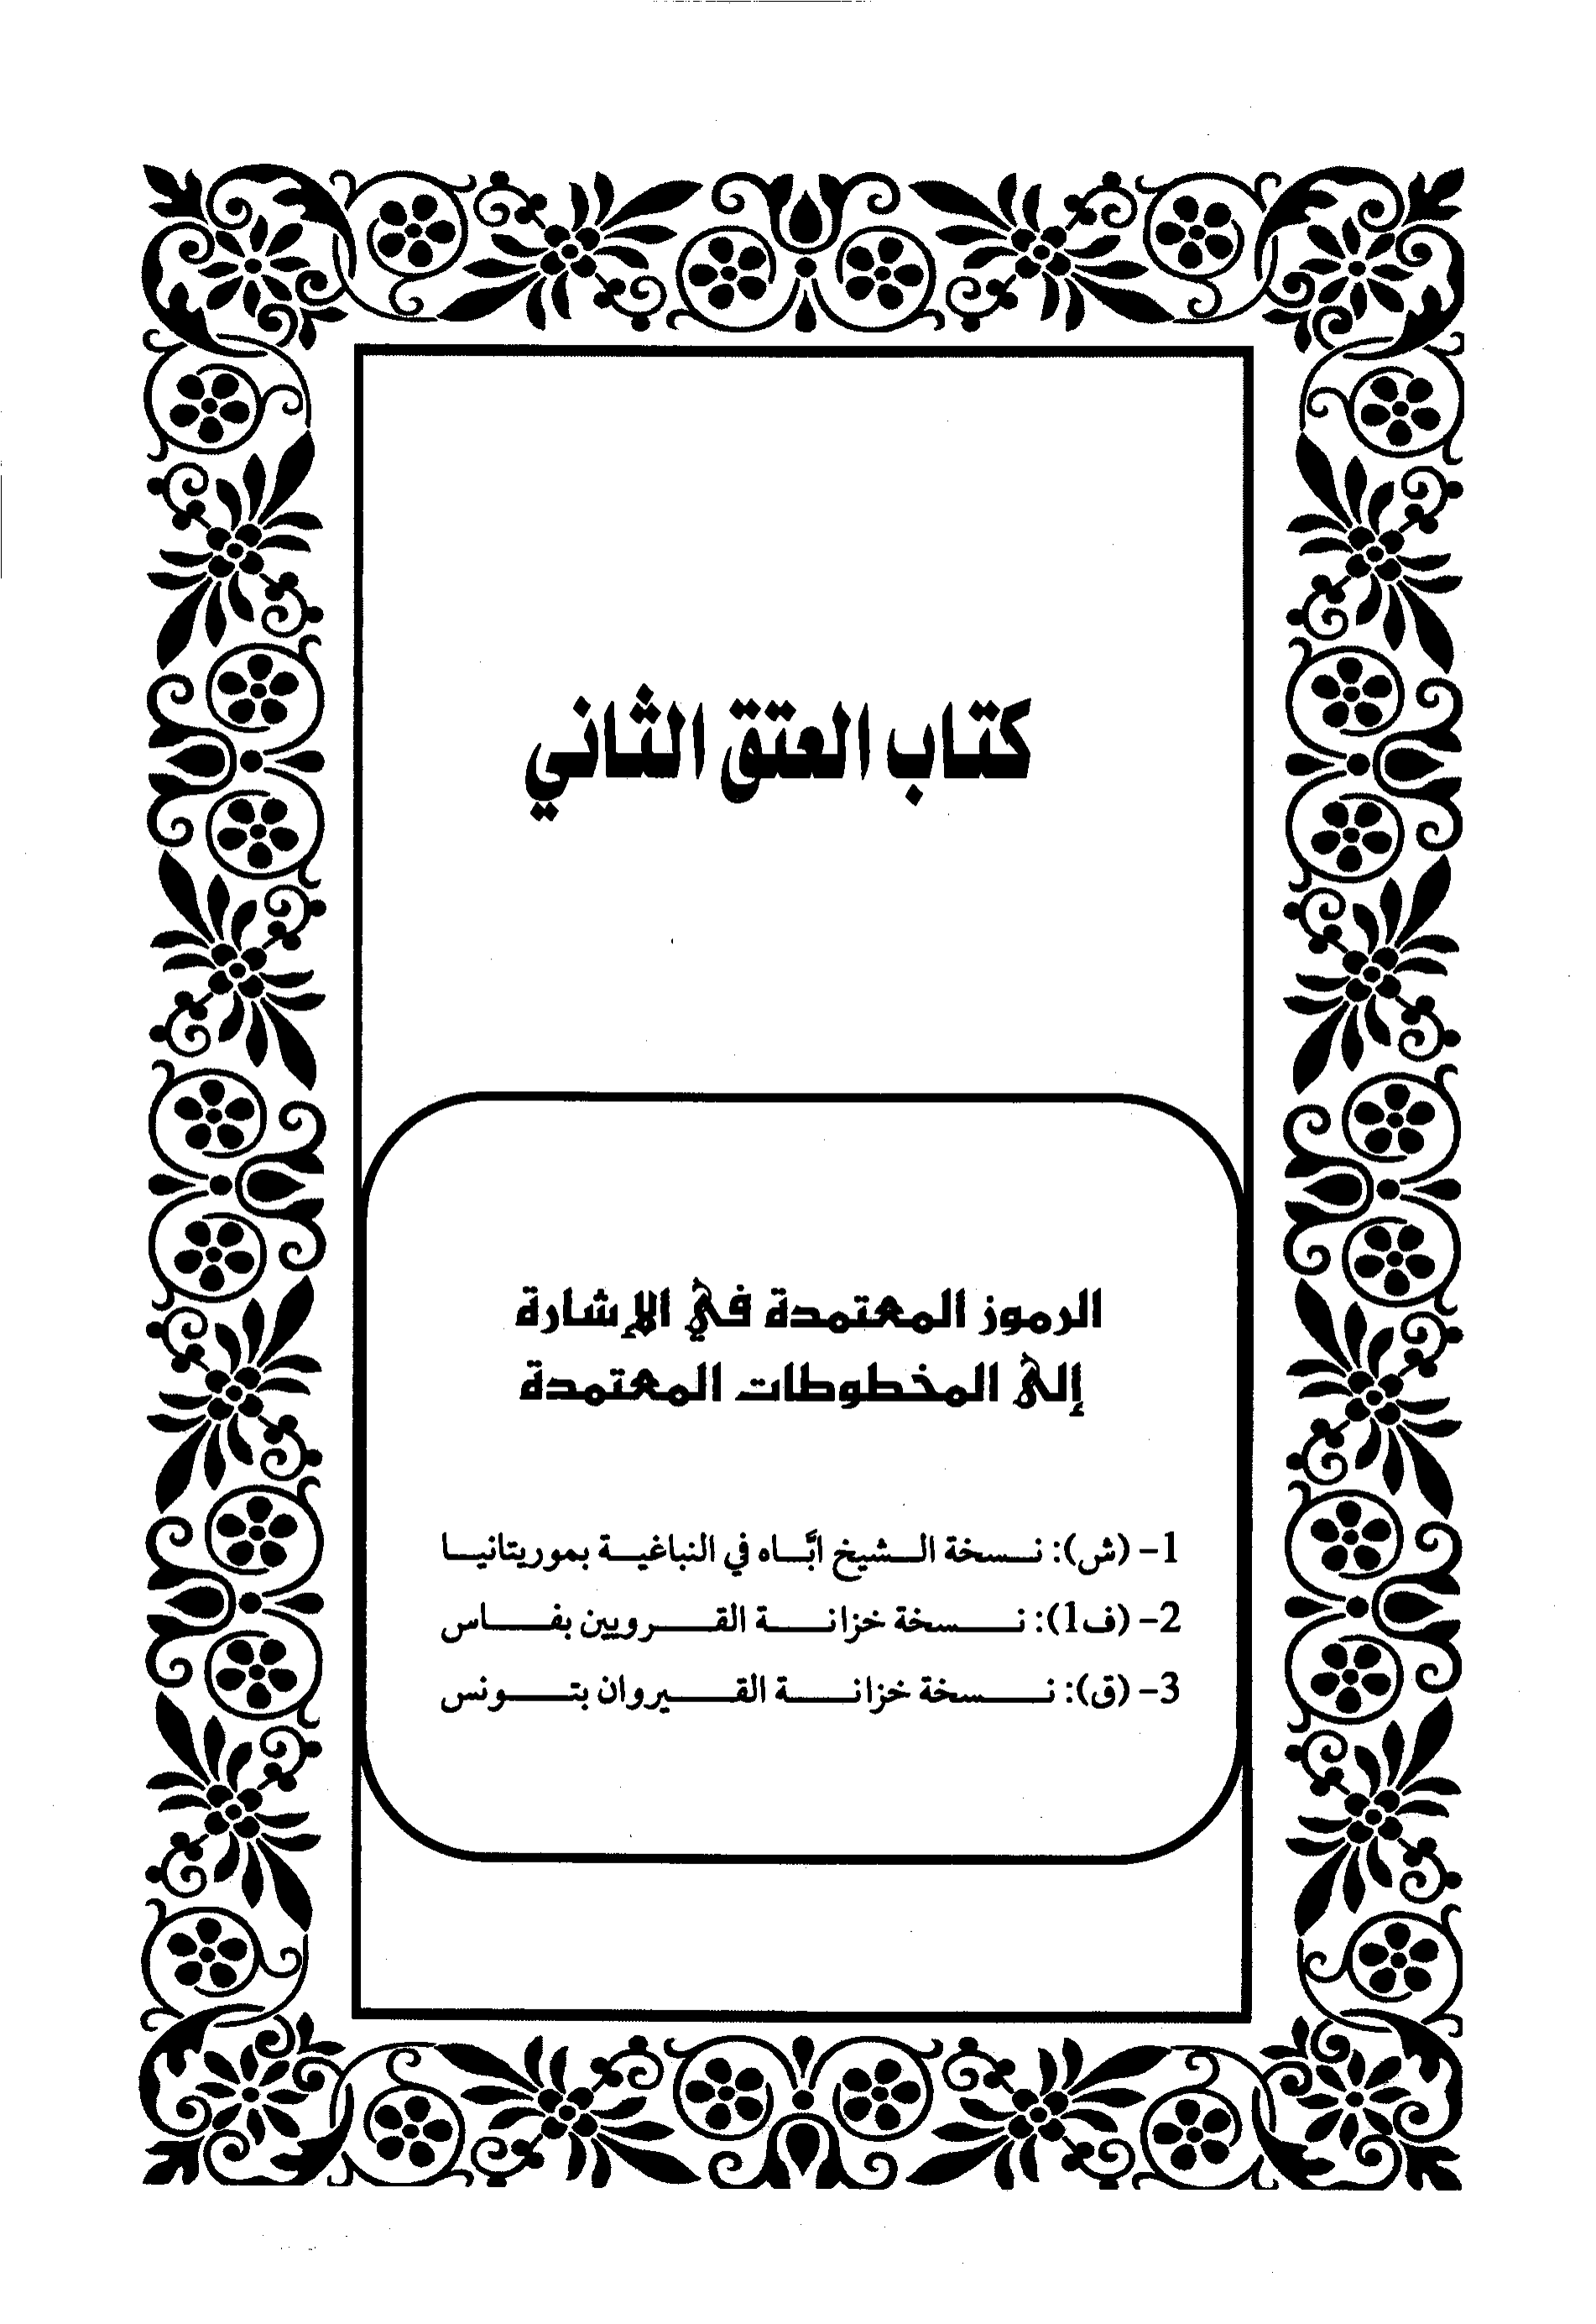 كتاب العتق الثاني
الرموز المعتمدة في الإشارة
إلى المخطوطات المعتمدة
1- (ش): نسخة الشيخ ابَّاه في النباغية بموريتانيا
2- (ف1): نسخة خزانة القرويين بفاس
3- (ق): نسخة خزانة القيروان بتونس